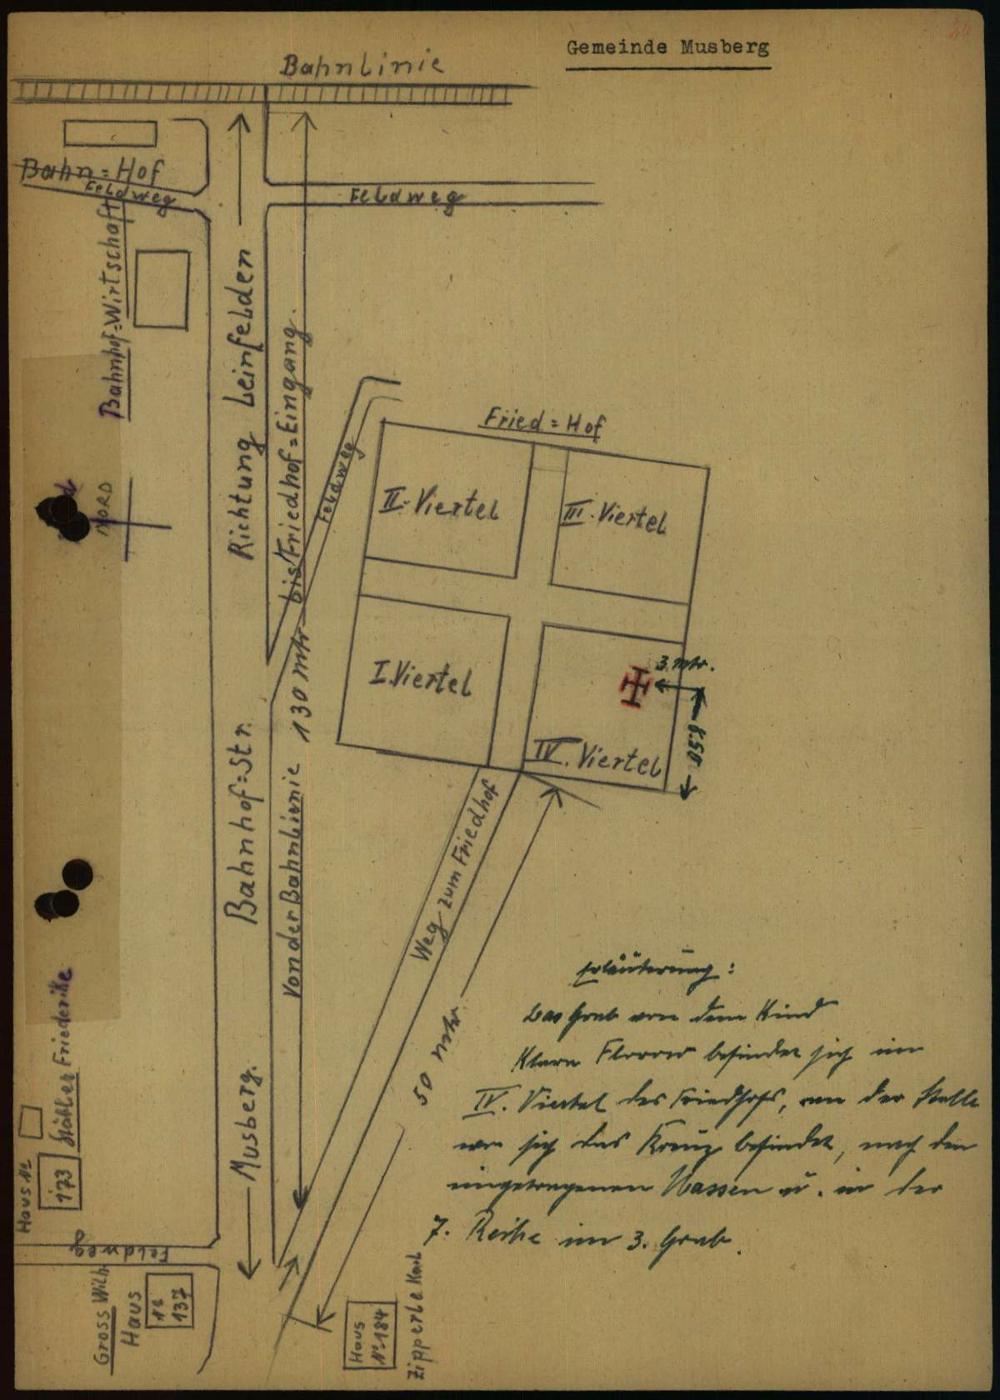 Gemeinde Musberg
Bahnlinie
Bahn=Hof
Feldweg
Feldweg
Bahnhof=Wirtschaft
Richtung Leinfelden
Von der Bahnlinnie 130 mtr bis Friedhof=Eingang.
Feldweg
NORD
Fried=Hof
II. Viertel
III. Viertel
I. Viertel
IV. Viertel
3. mtr.
8.50
Bahnhof=Str.
Weg zum Friedhof
50 mtr.
Musberg.
Friederike
Haus №
173
Feldweg
Gross Wilh.
Haus
№
137
Haus
№ 184
Zipperle Karl
Erläuterung:
Das Grab von dem Kind
Klara befindet sich im
IV. Viertel des Friedhofs, an der Stelle
wo sich das Kreuz befindet, nach den
eingetragenen Massen u. in der
7. Reihe im 3. Grab.